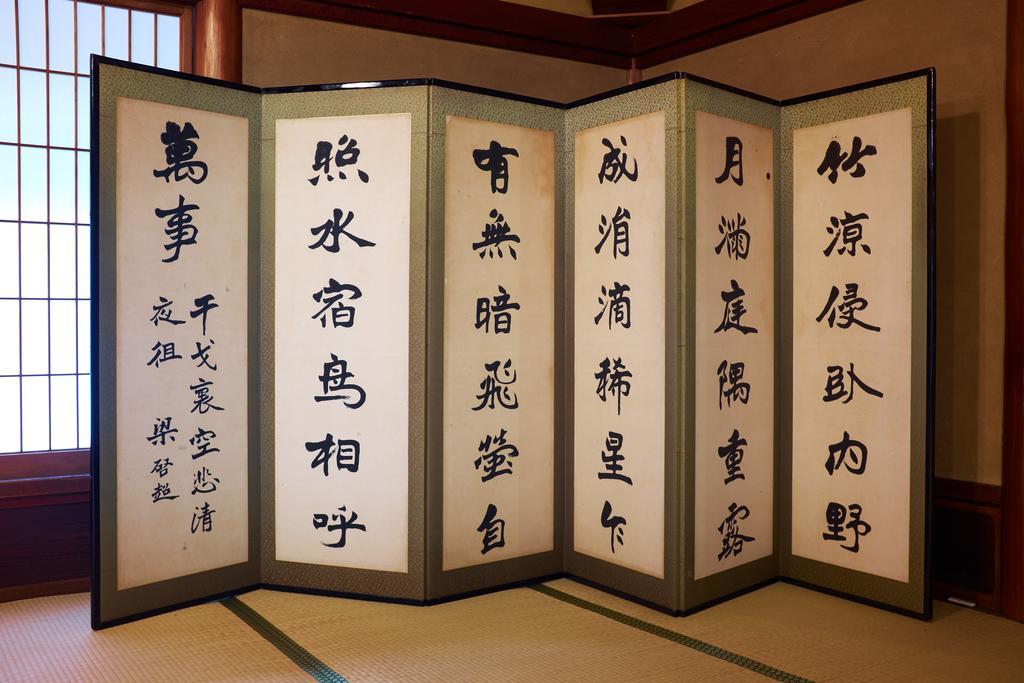 竹涼侵卧内野
月滿庭隅重露
成涓滴稀星乍
有無暗飛螢自
照水宿鳥相呼
萬事
干戈裏空悲清
夜徂 梁啓超